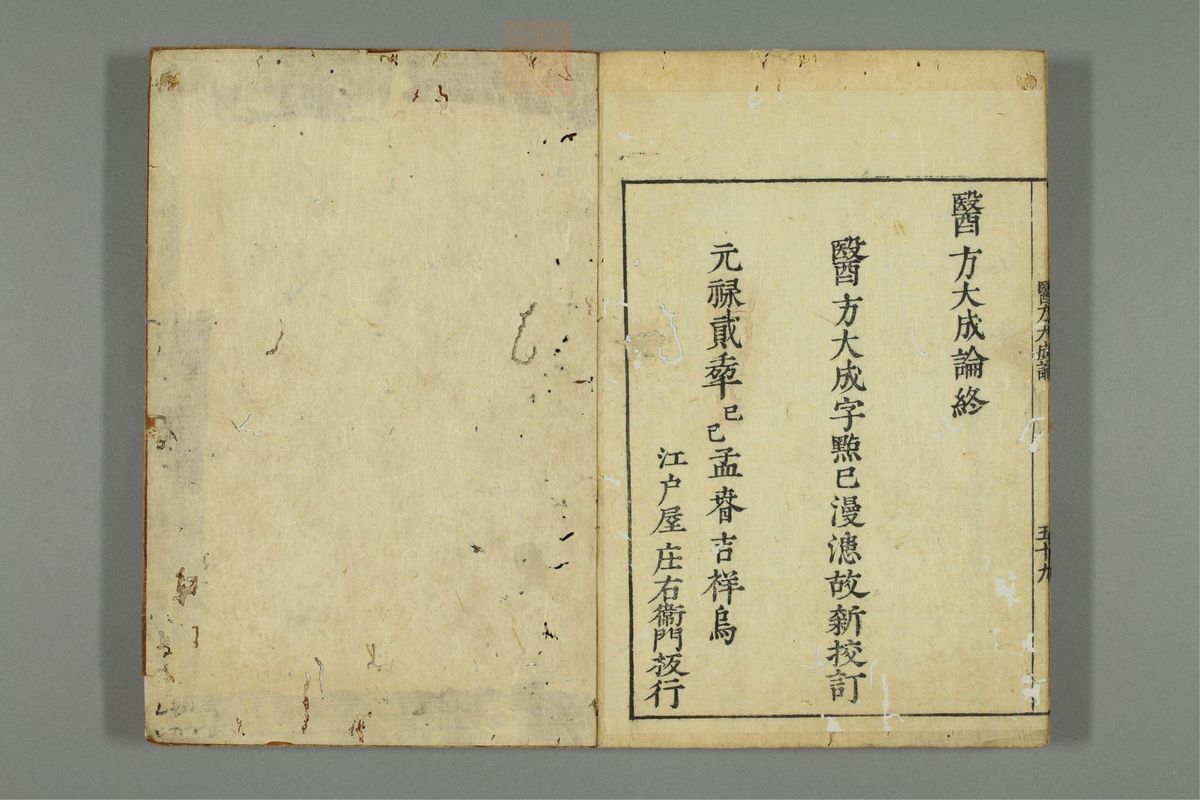 醫方大成論 五十九
醫方大成論終
醫方大成字㸃已漫漶故新挍訂
元禄貳年己巳孟春吉祥烏
江戸屋庄右衞門板行